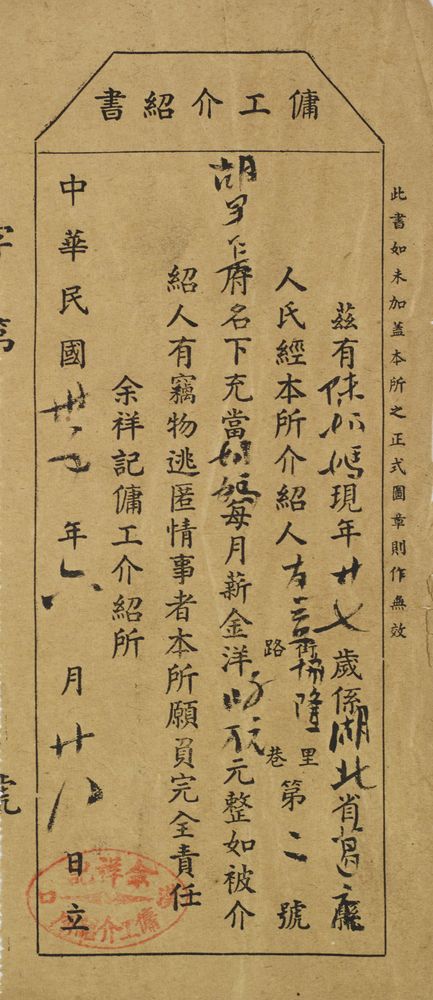 傭工介紹書
此書如未加蓋本所之正式圖章則作無效
茲有陳媽現年廿七歲係湖北省
人氏經本所介紹人友 街路 協隆 里巷 第二號
胡 府名下充當 每月薪金洋 元整如被介
紹人有竊物逃匿情事者本所願負完全責任
余祥記傭工介紹所
中華民國卅七年六月廿八日立
余祥記
漢口
傭工介紹所
字第
號